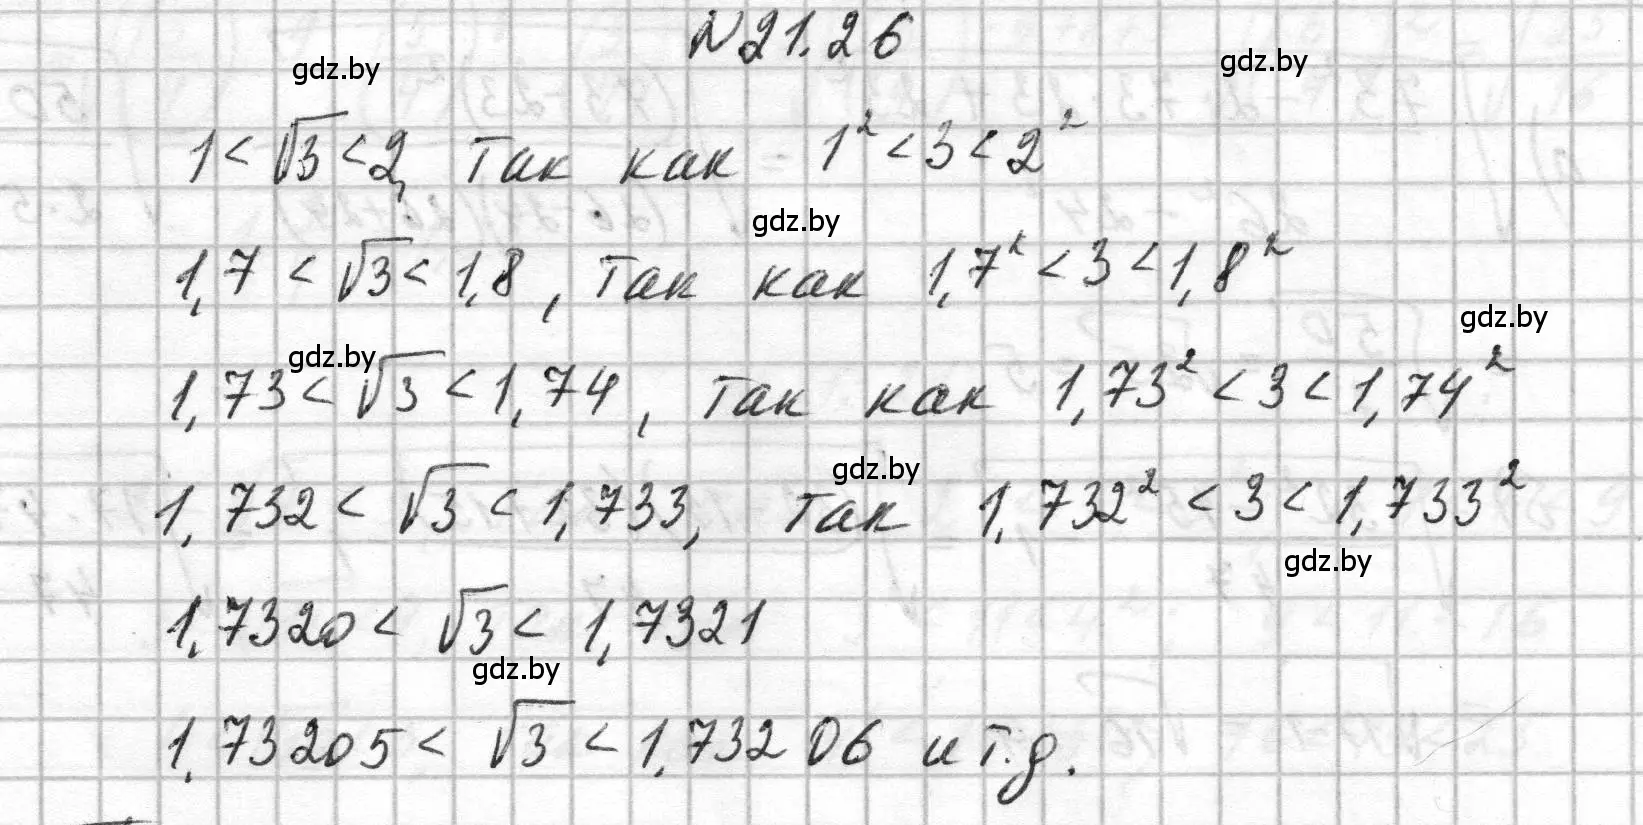 № 21.26
gdz.by gdz.by
1 < √3 < 2, так как 1² < 3 < 2²
gdz.by
1,7 < √3 < 1,8, так как 1,7² < 3 < 1,8²
gdz.by gdz.by
1,73 < √3 < 1,74, так как 1,73² < 3 < 1,74²
gdz.by
1,732 < √3 < 1,733, так 1,732² < 3 < 1,733²
gdz.by
1,7320 < √3 < 1,7321
gdz.by
1,73205 < √3 < 1,73206 и т.д.